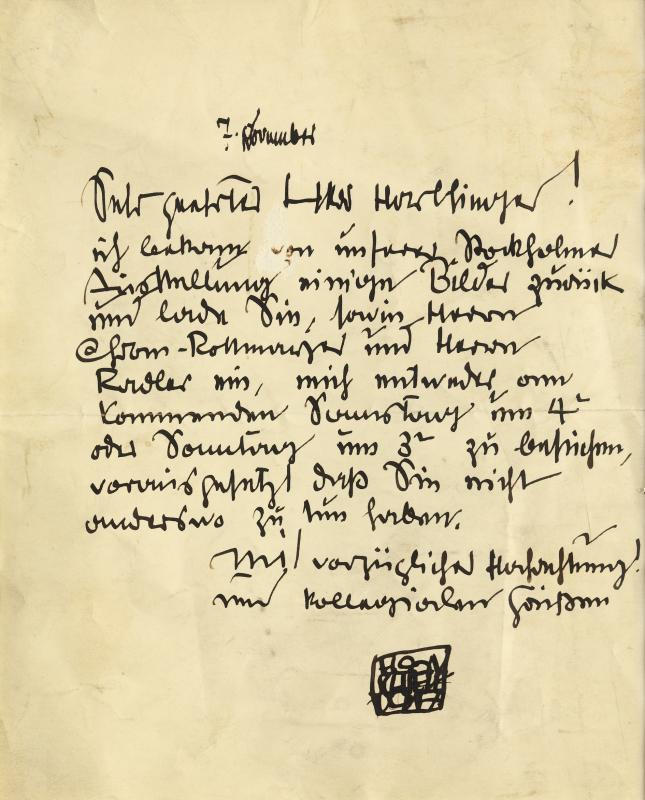 7. November
Sehr geehrter Herr Harlfinger!
ich bekam von unserer Stockholmer
Ausstellung einige Bilder zurück
und lade Sie, sowie Herrn
Ehrom-Rottmayer und Herrn
Radler ein, mich entweder am
kommenden Samstag um 4ʰ
oder Sonntag um 3ʰ zu besuchen,
vorausgesetzt daß Sie nicht
anderswo zu tun haben.
Mit vorzüglicher Hochachtung!
und kollegialen Grüßen